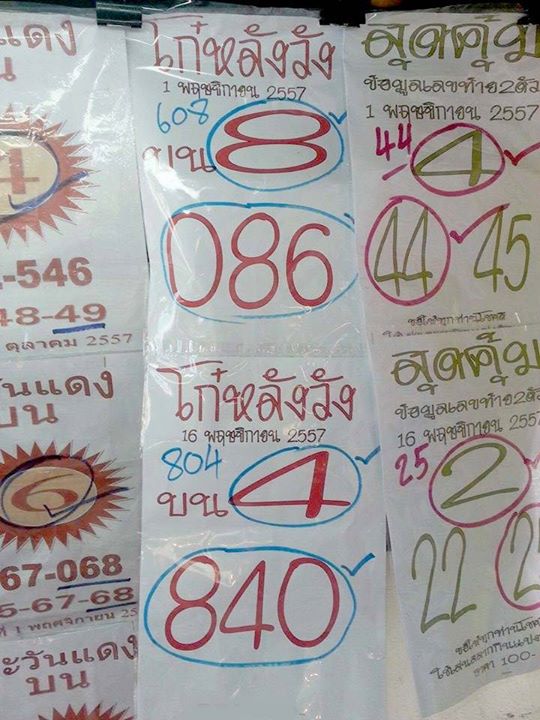 แดง
บน
4
-546
48-49
ตุลาคม 2557
วันแดง
บน
6
67-068
5-67-68
1 พฤศจิกายน 25
ะวันแดง
บน
ไก่หลังวัง
1 พฤศจิกายน 2557
608
บน 8
086
ไก่หลังวัง
16 พฤศจิกายน 2557
804
บน 4
840
สุดคุ้ม
ข้อมูลเลขท้าย2ตัว
1 พฤศจิกายน 2557
44 4
44 45
ขอให้ทุกท่านโชคดี
สุดคุ้ม
ข้อมูลเลขท้าย2ตัว
16 พฤศจิกายน 2557
25 2
22 2
ขอให้ทุกท่านโชคดี
ราคา 100-